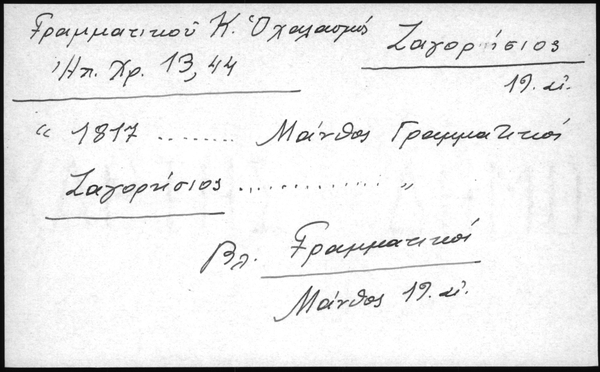 Γραμματικοῦ Κ. Ὁ χαλασμός
Ἠπ. Χρ. 13, 44
Ζαγορήσιος
19. αἰ.
“ 1817 ........ Μάνθος Γραμματικός
Ζαγορήσιος ............. „
Βλ. Γραμματικός
Μάνθος 19. αἰ.